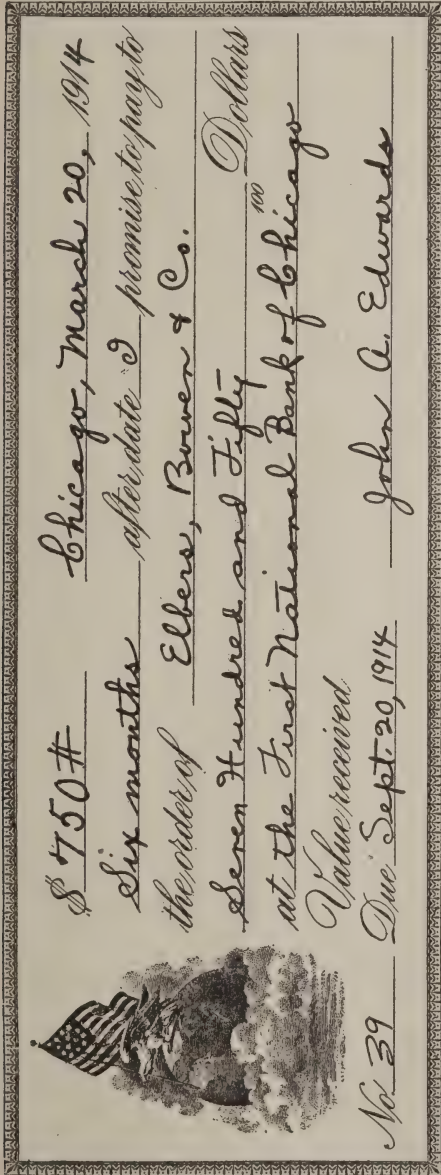 $750# Chicago, March 20, 1914
Six months after date I promise to pay to
the order of Elbers, Bowen & Co.
Seven Hundred and Fifty 100 Dollars
at the First National Bank of Chicago
Value received
No. 39 Due Sept. 20, 1914 John A. Edwards